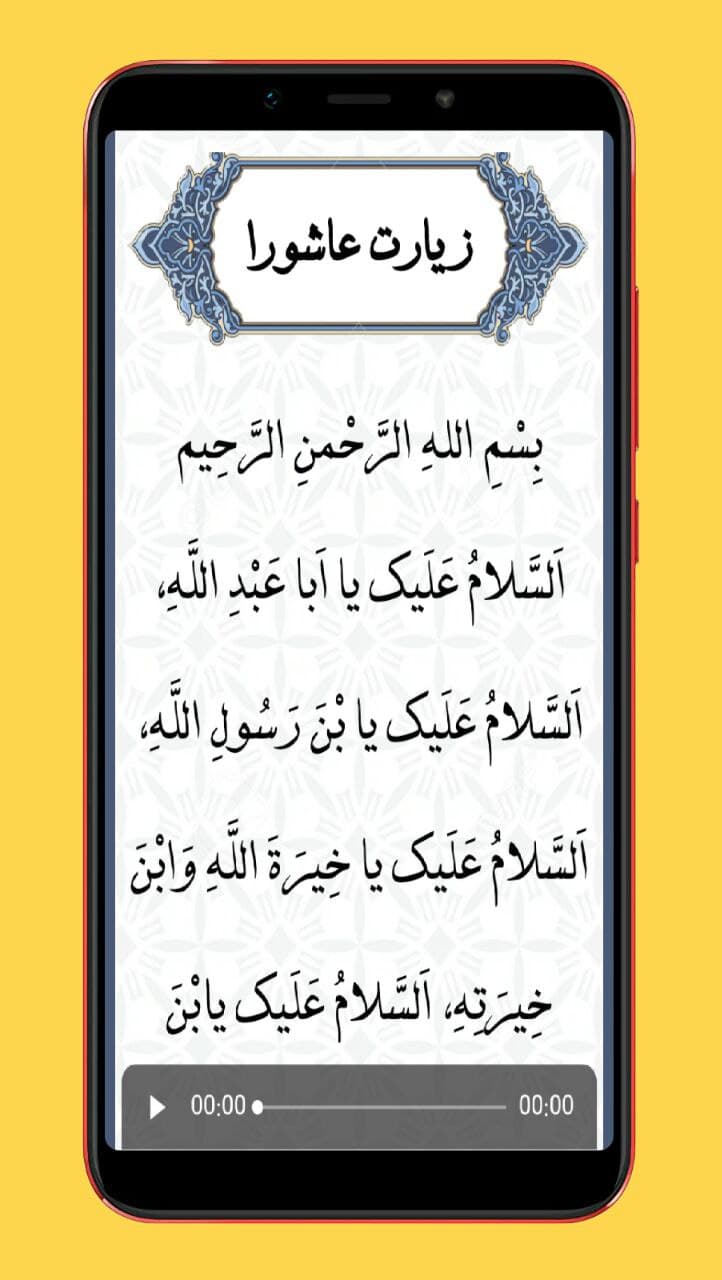 زیارت عاشورا
بِسْمِ اللهِ الرَّحْمنِ الرَّحِیم
اَلسَّلامُ عَلَیک یا اَبا عَبْدِ اللَّهِ،
اَلسَّلامُ عَلَیک یا بْنَ رَسُولِ اللَّهِ،
اَلسَّلامُ عَلَیک یا خِیرَةَ اللَّهِ وَابْنَ
خِیرَتِهِ، اَلسَّلامُ عَلَیک یابْنَ
00:00 00:00